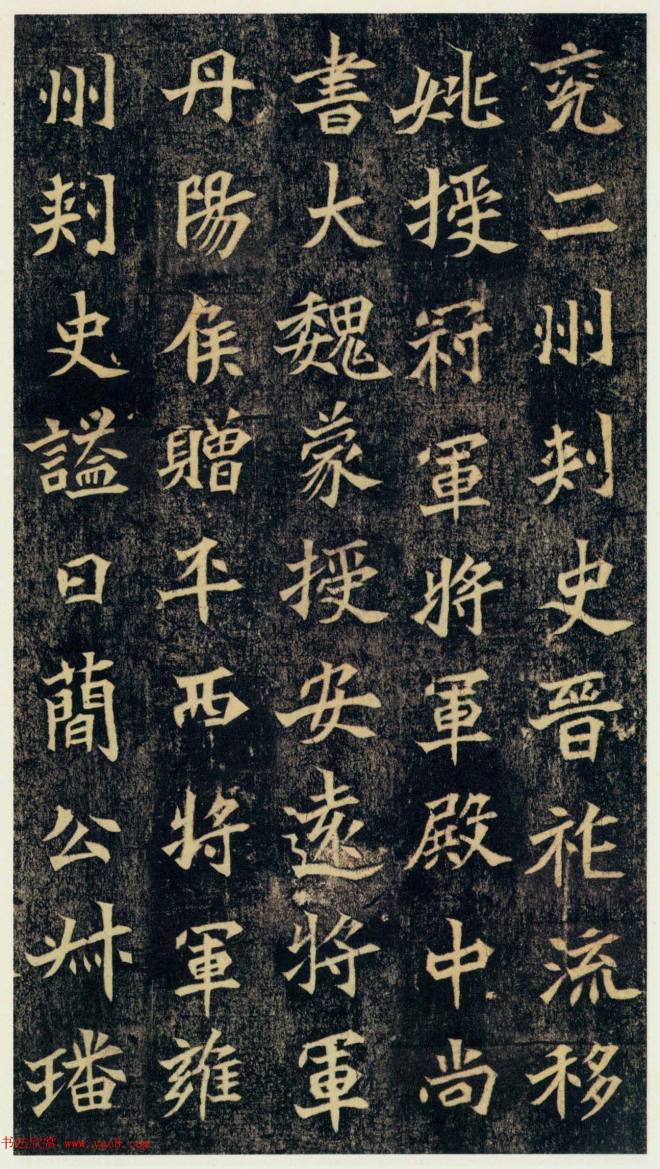 兖二州刾史晉祚流移
姚授冠軍將軍殿中尚
書大魏蒙授安遠將軍
丹陽侯贈平西將軍雍
州刾史謚曰簡公叔璠
书法欣赏 www.yac8.com